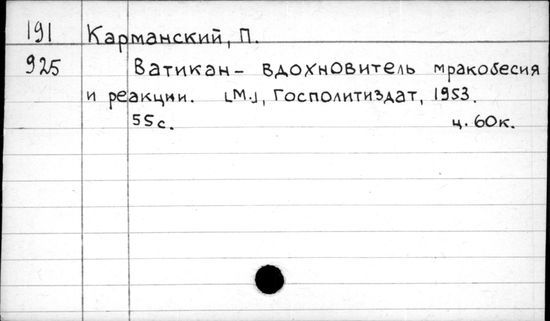 191 Карманский, П.
925 Ватикан – вдохновитель мракобесия
и реакции. [М.], Госполитиздат, 1953.
55с. ц. 60к.